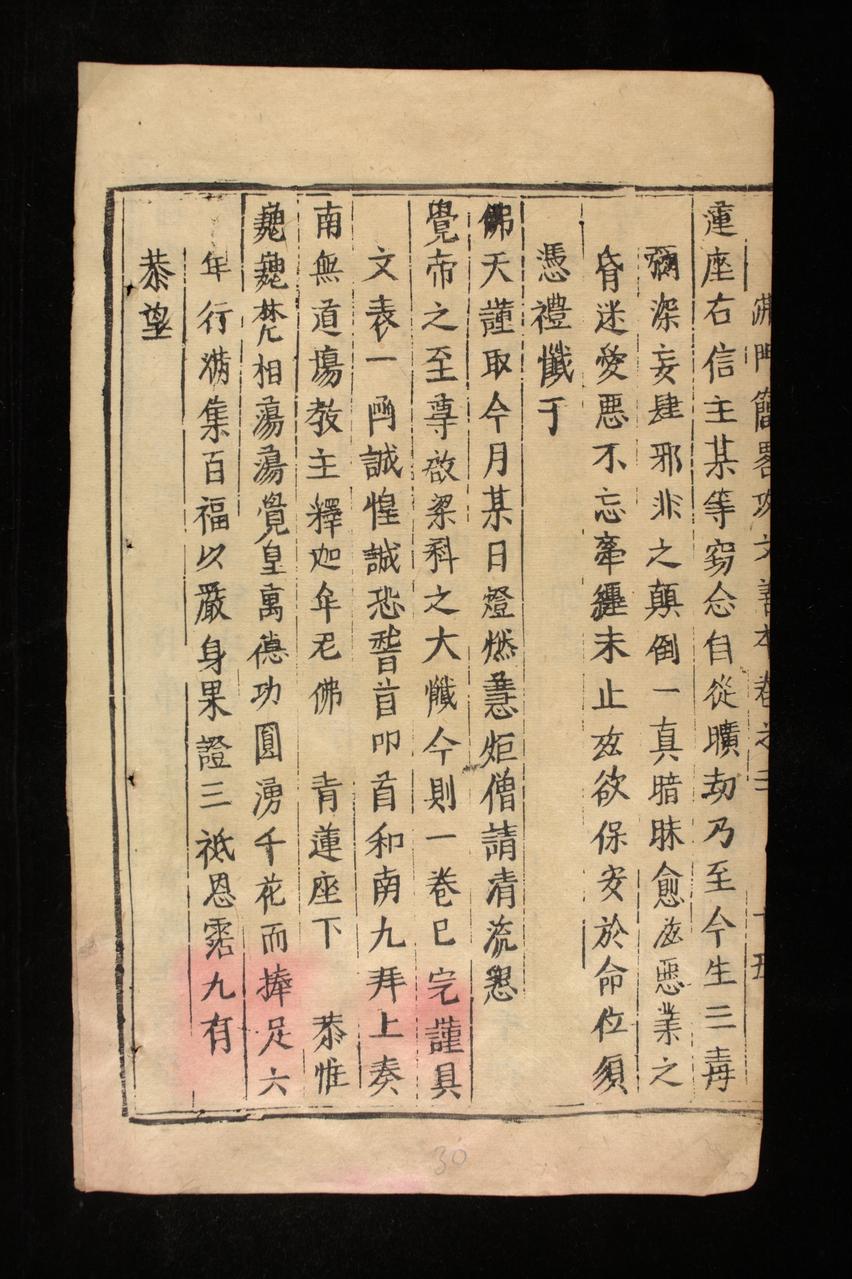 佛門簡畧攻文書本卷之三 十五
蓮座右信主某等窃念自從曠劫乃至今生三毒
彌深妄肆邪非之顛倒一真暗昧愈滋惡業之
昏迷愛惡不忘牽纏未止玆欲保安於命位須
憑禮懺于
佛天謹取今月某日燈燃慧炬僧請清流懇
覺帝之至尊啟梁科之大懺今則一卷已完謹具
文表一凾誠惶誠恐稽首叩首和南九拜上奏
南無道塲教主釋迦牟尼佛 青蓮座下 恭惟
巍巍梵相蕩蕩覺皇萬德功圓湧千花而捧足六
年行滿集百福以嚴身果證三祇恩霑九有
恭望
30